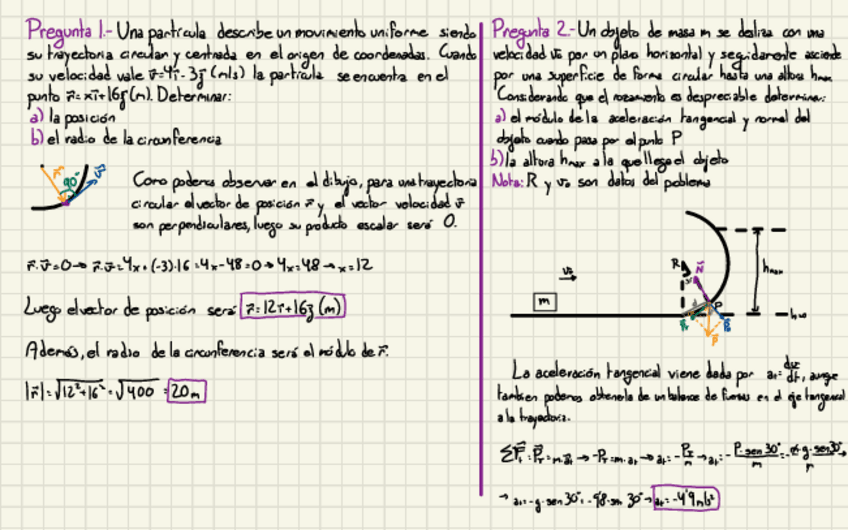 Pregunta 1.- Una partícula describe un movimiento uniforme siendo
su trayectoria circular y centrada en el origen de coordenadas. Cuando
su velocidad vale v⃗=4i⃗-3j⃗ (m/s) la partícula se encuentra en el
punto r⃗=xi⃗+16j⃗ (m). Determinar:
a) la posición
b) el radio de la circunferencia
r⃗
90°
v⃗
Como podemos observar en el dibujo, para una trayectoria
circular el vector de posición r⃗ y el vector velocidad v⃗
son perpendiculares, luego su producto escalar será 0.
r⃗·v⃗=0→ r⃗·v⃗=4x+(-3)·16=4x-48=0→4x=48→x=12
Luego el vector de posición será r⃗=12i⃗+16j⃗ (m)
Además, el radio de la circunferencia será el módulo de r⃗.
|r⃗|=√12²+16²=√400=20m
Pregunta 2.- Un objeto de masa m se desliza con una
velocidad v₀ por un plano horizontal y seguidamente asciende
por una superficie de forma circular hasta una altura hmax
Considerando que el rozamiento es despreciable determinar:
a) el módulo de la aceleración tangencial y normal del
objeto cuando pasa por el punto P
b) la altura hmax a la que llega el objeto
Nota: R y v₀ son datos del problema
v₀
m
R
N
P
hmax
La aceleración tangencial viene dada por at=dv/dt, aunque
también podemos obtenerla de un balance de fuerzas en el eje tangencial
a la trayectoria.
ΣF⃗t=P⃗T=m·a⃗t→-PT=m·at→at=-PT/m→at=-P·sen30°/m=-m·g·sen30°/m→
→at=-g·sen30°=-9'8·sen 30°→at=-4'9m/s²